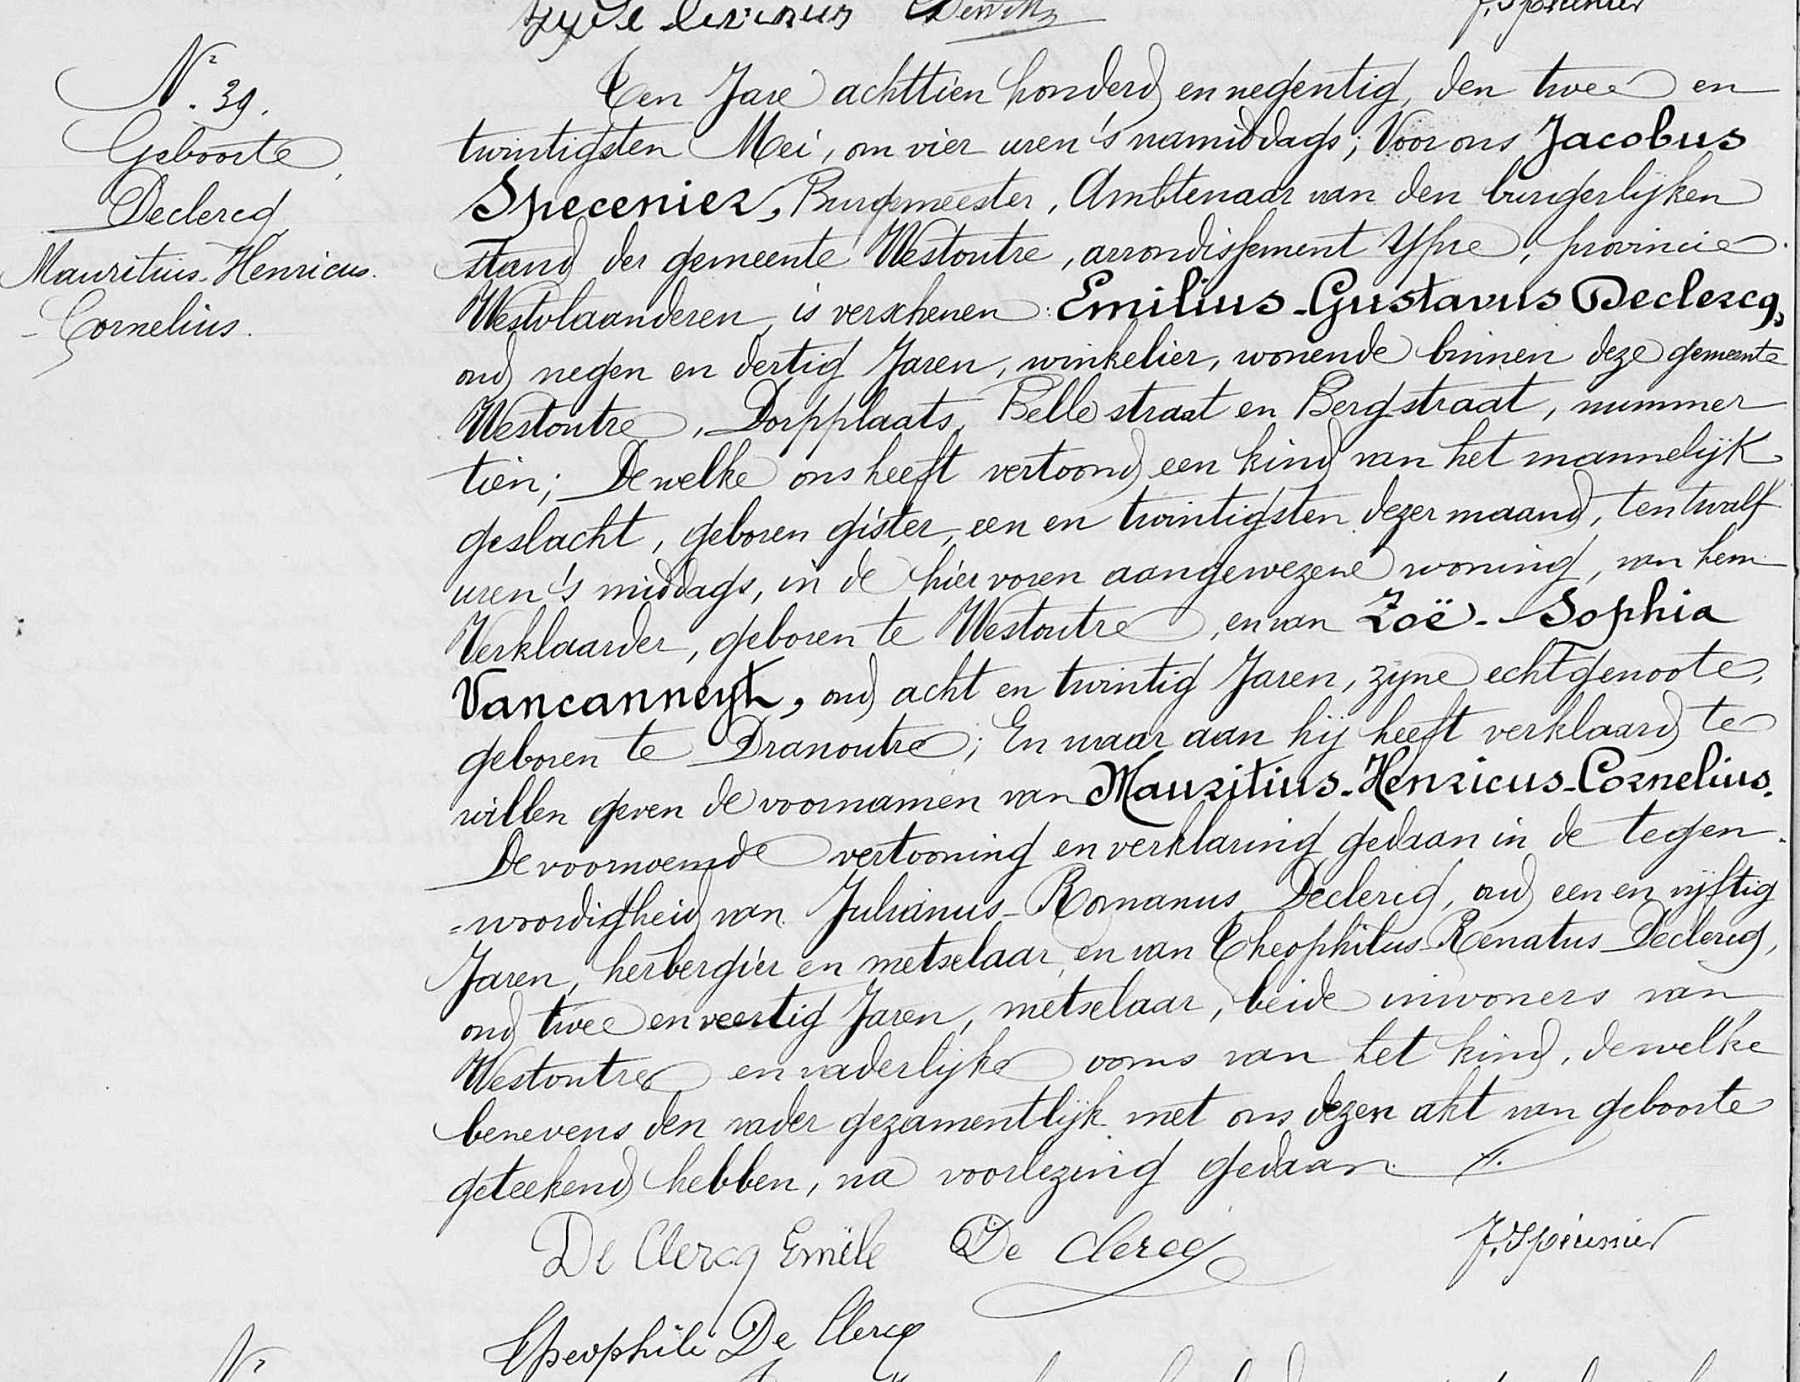 J. Specenier
N.r 39.
Geboorte
Declercq
Mauritius-Henricus
-Cornelius.
Ten Jare achttien honderd en negentig, den twee en
twintigsten Mei, om vier uren 's namiddags; Voor ons Jacobus
Specenier, Burgemeester, Ambtenaar van den burgerlijken
stand der gemeente Westoutre, arrondissement Ypre, provincie
Westvlaanderen, is verschenen Emilius-Gustavus Declercq,
oud negen en dertig Jaren, winkelier, wonende binnen deze gemeente
Westoutre, Dorpplaats, Belle straat en Bergstraat, nummer
tien; Dewelke ons heeft vertoond een kind van het mannelijk
geslacht, geboren gister, een en twintigsten dezer maand, ten twalf
uren 's middags, in de hier voren aangewezene woning, van hem
Verklaarder, geboren te Westoutre, en van Zoë-Sophia
Vancanneyt, oud acht en twintig Jaren, zyne echtgenoote,
geboren te Dranoutre; En waar aan hij heeft verklaard te
willen geven de voornamen van Mauritius-Henricus-Cornelius.
De voornoemde vertooning en verklaring gedaan in de tegen-
=woordigheid van Julianus-Romanus Declercq, oud een en vijftig
Jaren, herbergier en metselaar, en van Theophilus-Renatus Declercq,
oud twee en veertig Jaren, metselaar, beide inwoners van
Westoutre en vaderlijke ooms van het kind, dewelke
benevens den vader gezamentlijk met ons dezen akt van geboorte
geteekend hebben, na voorlezing gedaan.
De Clercq Emile De Clercq J. Specenier
Theophile De Clercq
N.r